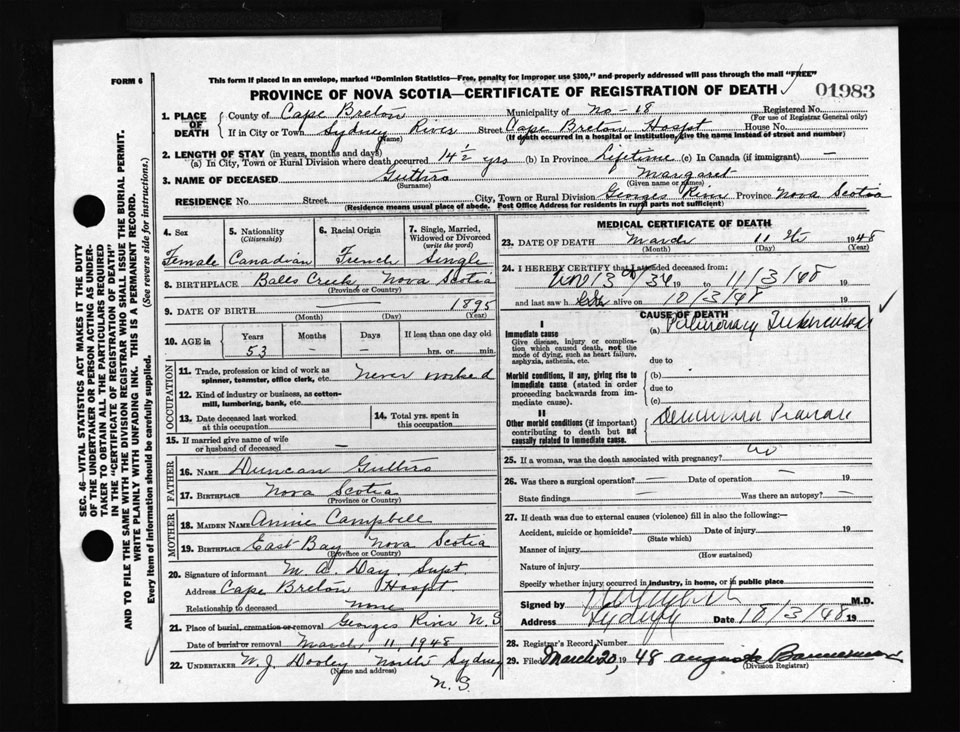 FORM 6
This form if placed in an envelope, marked "Dominion Statistics—Free, penalty for improper use $300," and properly addressed will pass through the mail "FREE"
PROVINCE OF NOVA SCOTIA—CERTIFICATE OF REGISTRATION OF DEATH
01983
1. PLACE OF DEATH { County of Cape Breton Municipality of No-18 Registered No.
(For use of Registrar General only)
If in City or Town Sydney River Street Cape Breton Hospt House No.
(Name) (If death occurred in a hospital or institution, give the name instead of street and number)
2. LENGTH OF STAY (in years, months and days)
(a) In City, Town or Rural Division where death occurred 14½ yrs (b) In Province Lifetime (c) In Canada (if immigrant) —
3. NAME OF DECEASED Guttiro Margaret
(Surname) (Given name or names)
RESIDENCE No. Street City, Town or Rural Division Georges River Province Nova Scotia
(Residence means usual place of abode. Post Office Address for residents in rural parts not sufficient)
4. Sex 5. Nationality 6. Racial Origin 7. Single, Married, Widowed or Divorced
(Citizenship) (write the word)
Female Canadian French Single
8. BIRTHPLACE Balls Creek Nova Scotia
(Province or Country)
9. DATE OF BIRTH 1895
(Month) (Day) (Year)
10. AGE in Years Months Days If less than one day old
53 — — hrs. or min.
OCCUPATION
11. Trade, profession or kind of work as spinner, teamster, office clerk, etc. Never worked
12. Kind of industry or business, as cotton-mill, lumbering, bank, etc.
13. Date deceased last worked at this occupation 14. Total yrs. spent in this occupation
15. If married give name of wife or husband of deceased —
FATHER
16. NAME Duncan Guttiro
17. BIRTHPLACE Nova Scotia
(Province or Country)
MOTHER
18. MAIDEN NAME Annie Campbell
19. BIRTHPLACE East Bay Nova Scotia
(Province or Country)
20. Signature of informant M. A. Day. Supt.
Address Cape Breton Hospt.
Relationship to deceased none
21. Place of burial, cremation or removal Georges River N.S
Date of burial or removal March 11, 1948
22. UNDERTAKER W. J. Dooley North Sydney
(Name and address)
N.S.
MEDICAL CERTIFICATE OF DEATH
23. DATE OF DEATH March 11th 1948
(Month) (Day) (Year)
24. I HEREBY CERTIFY that I attended deceased from
19 to 11/3/48
and last saw her alive on 10/3/48 19
CAUSE OF DEATH
I
Immediate cause
Give disease, injury or complication which caused death, not the mode of dying, such as heart failure, asphyxia, asthenia, etc.
(a) Pulmonary Tuberculosis
due to
Morbid conditions, if any, giving rise to immediate cause (stated in order proceeding backwards from immediate cause).
(b)
due to
(c)
II
Other morbid conditions (if important) contributing to death but not causally related to immediate cause.
Dementia Praecox
25. If a woman, was the death associated with pregnancy? no
26. Was there a surgical operation? — Date of operation — 19
State findings — Was there an autopsy? —
27. If death was due to external causes (violence) fill in also the following:—
Accident, suicide or homicide? Date of injury 19
(State which)
Manner of injury
(How sustained)
Nature of injury
Specify whether injury occurred in industry, in home, or in public place
Signed by M.D.
Address Sydney Date 18/3/48 19
28. Registrar's Record Number
29. Filed March 20, 1948 Bannerman
(Division Registrar)
SEC. 46—VITAL STATISTICS ACT MAKES IT THE DUTY
OF THE UNDERTAKER OR PERSON ACTING AS UNDER-
TAKER TO OBTAIN ALL THE PARTICULARS REQUIRED
IN THE "CERTIFICATE OF REGISTRATION OF DEATH"
AND TO FILE THE SAME WITH THE DIVISION REGISTRAR WHO SHALL ISSUE THE BURIAL PERMIT.
WRITE PLAINLY WITH UNFADING INK. THIS IS A PERMANENT RECORD.
Every item of information should be carefully supplied. (See reverse side for instructions.)